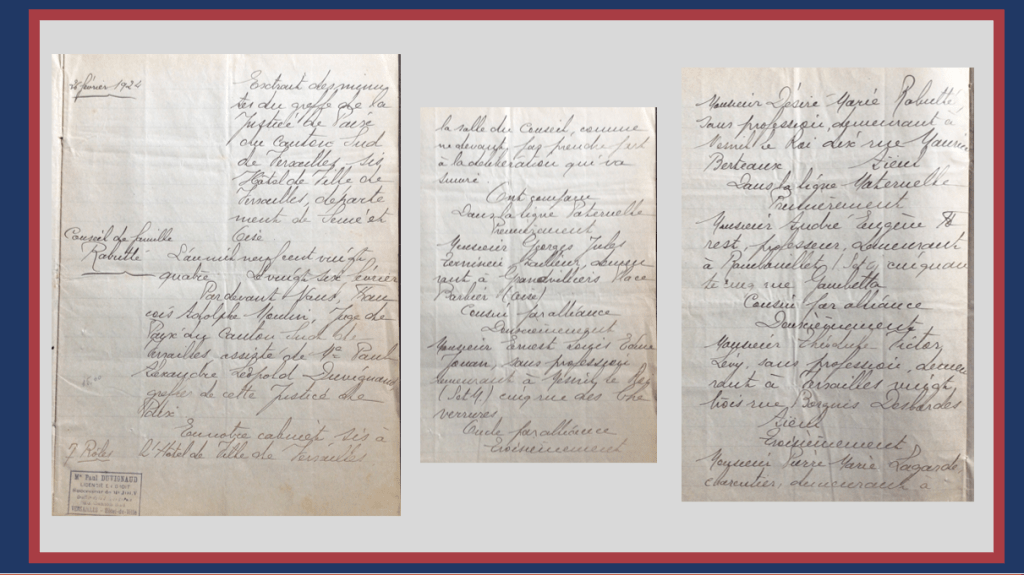 26 février 1924
Extrait des minu
tes du greffe de la
Justice de Paix
du Canton Sud
de Versailles, sis
Hôtel de Ville de
Versailles, départe
ment de Seine et
Oise
Conseil de famille
Rabutté
L'an mil neuf cent vingt
quatre le vingt six février
Par devant Nous, Fran
çois Adolphe Moulin, Juge de
Paix du Canton Sud de
Versailles assisté de Me Paul
Alexandre Léopold Duvignaud,
greffier de cette Justice de
Paix
En notre cabinet, sis à
l'Hôtel de Ville de Versailles
7 Rôles
Me Paul DUVIGNAUD
VERSAILLES
la salle du Conseil, comme
ne devant pas prendre part
à la délibération qui va
suivre.
Ont comparu
Dans la ligne Paternelle
Premièrement
Monsieur Georges Jules
demeu
rant à Grandvilliers place
Barbier (Oise)
Cousin par alliance
Deuxièmement
Monsieur Ernest Louis
sans profession
demeurant à
cinq rue des
verrures
Oncle par alliance
Troisièmement
Monsieur Désiré Marie Rabutté
sans profession, demeurant à
dix rue Maurice
Berteaux
Dans la ligne Maternelle
Premièrement
Monsieur André Eugène
professeur, demeurant
à Rambouillet
rue Gambetta
Cousin par alliance
Deuxièmement
Monsieur Théodule Victor
Lévy, sans profession, demeu
rant à Versailles vingt
trois rue Borgnis Desbordes
Troisièmement
Monsieur Pierre Marie Lagarde
charpentier, demeurant à